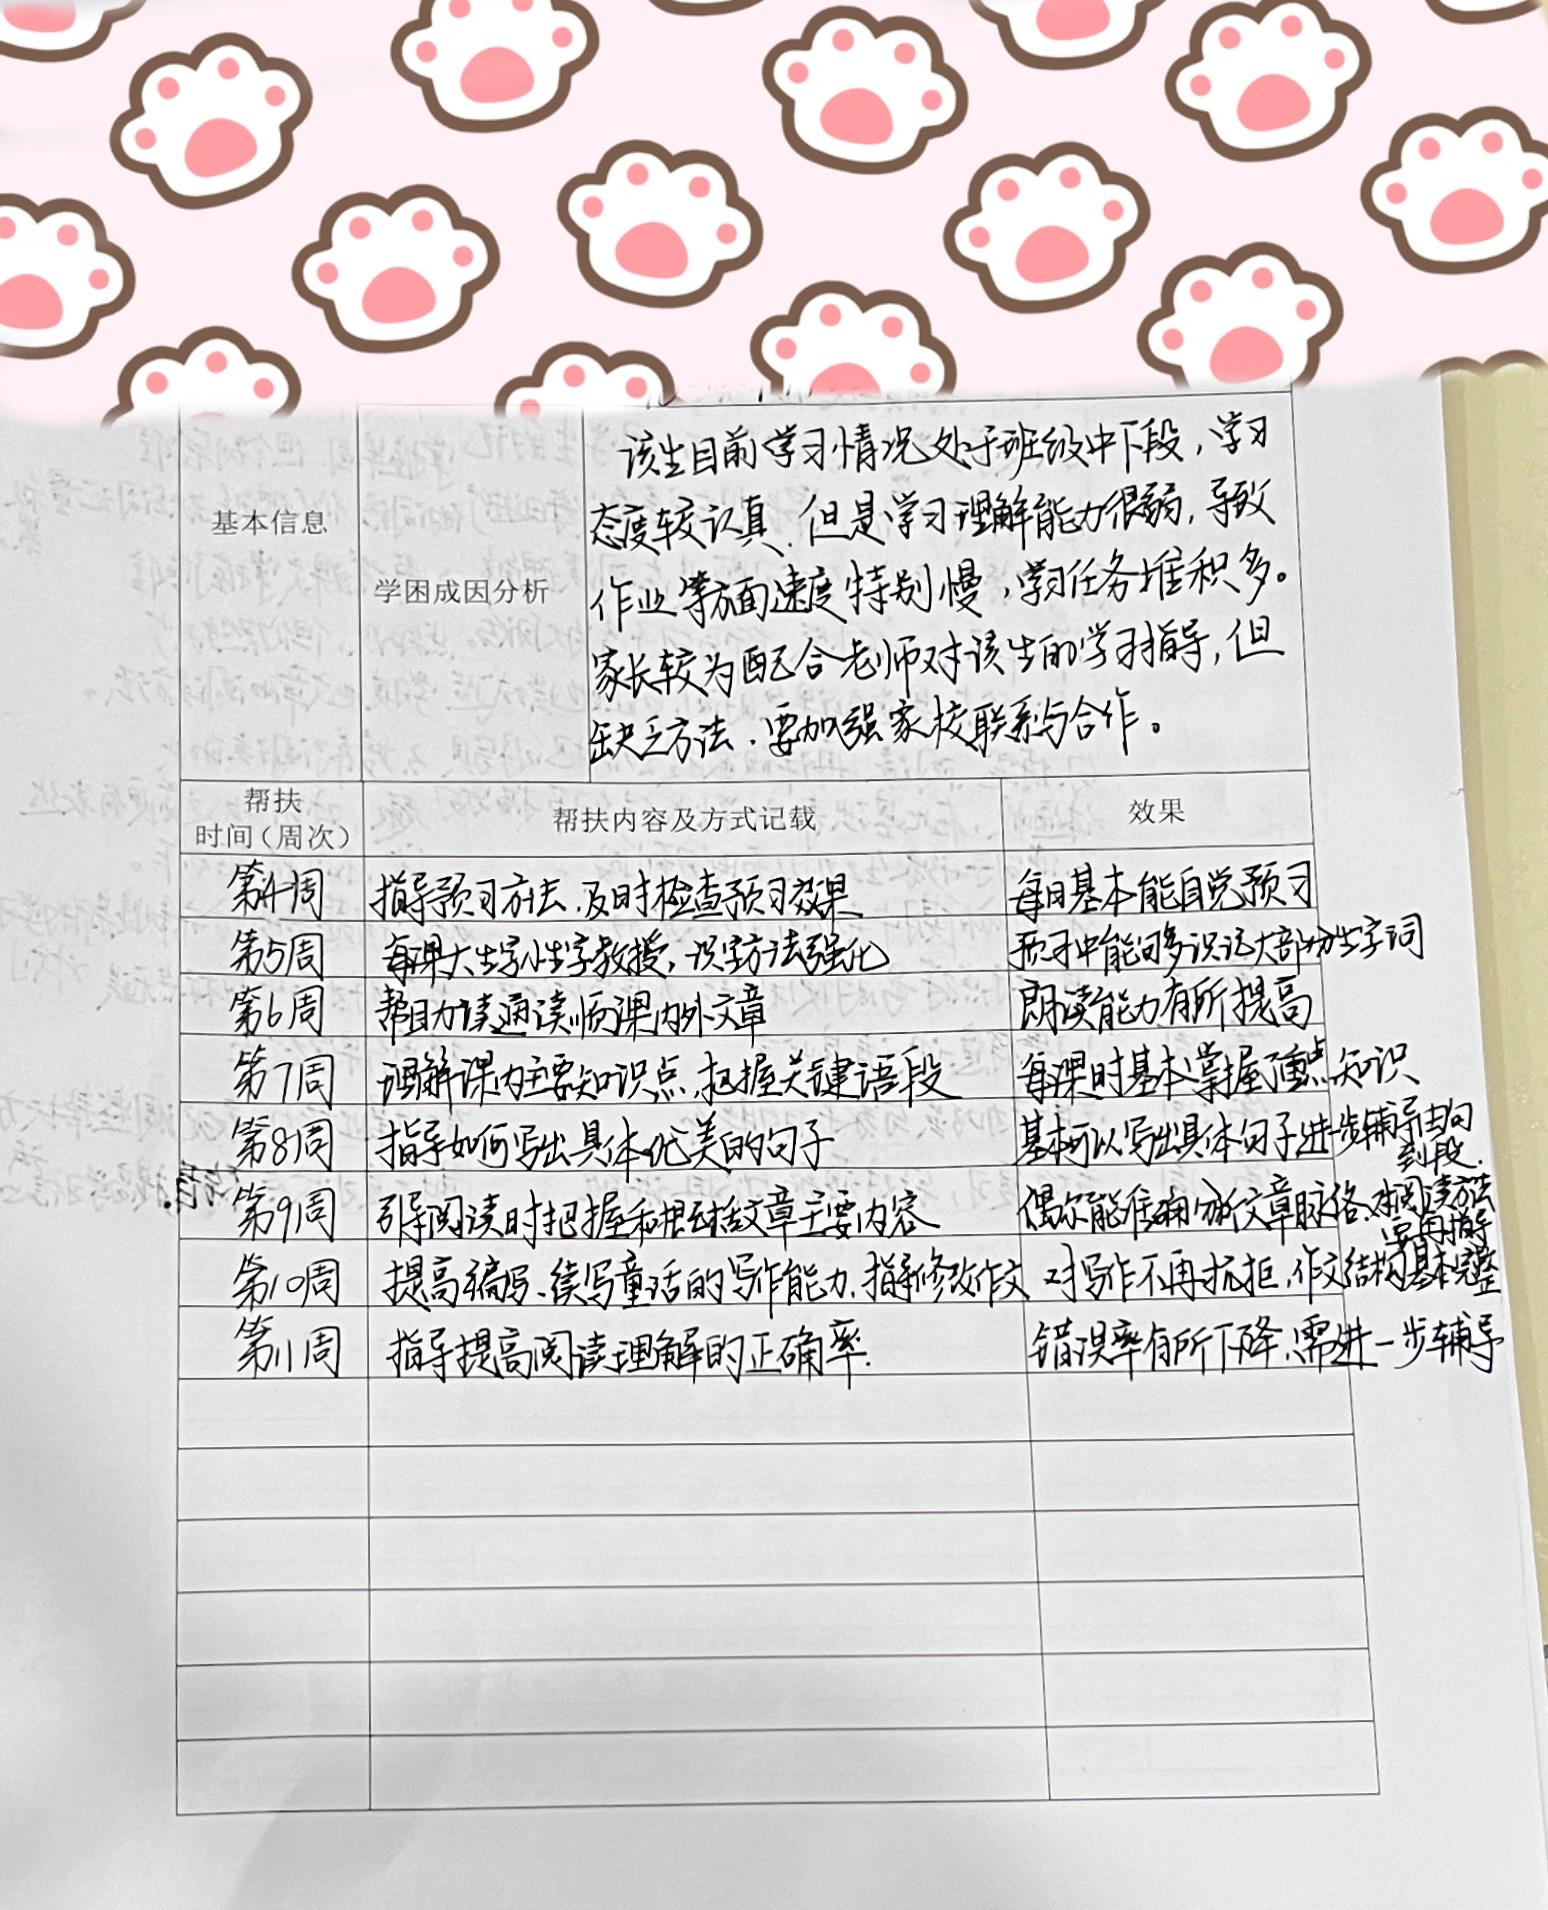 该生目前学习情况处于班级中下段，学习
态度较认真，但是学习理解能力很弱，导致
作业等方面速度特别慢，学习任务堆积多。
家长较为配合老师对该生的学习指导，但
缺乏方法，要加强家校联系与合作。
基本信息
学困成因分析
帮扶
时间（周次） 帮扶内容及方式记载 效果
第4周 指导预习方法，及时检查预习效果 每日基本能自觉预习
第5周 每课大生字小生字教授，识字方法强化 预习中能够多识记大部分生字词
第6周 帮助读通读顺课内外文章 朗读能力有所提高
第7周 理解课内主要知识点，把握关键语段 每课时基本掌握了重点知识
第8周 指导如何写出具体优美的句子 基本可以写出具体句子进一步辅导由句
到段.
第9周 引导阅读时把握和概括文章主要内容 偶尔能准确分析文章脉络，对阅读方法
要再指导
第10周 提高编写、续写童话的写作能力，指导修改作文 对写作不再抗拒，作文结构基本完整
第11周 指导提高阅读理解的正确率. 错误率有所下降，需进一步辅导